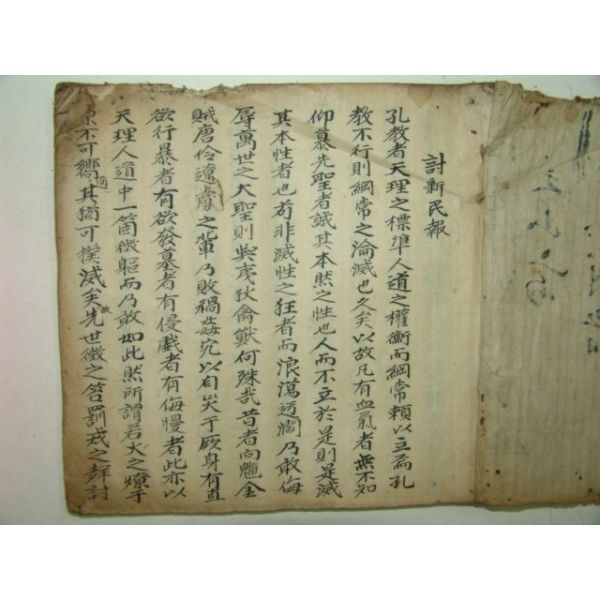 討新民報
孔教者天理之標準人道之權衡而綱常賴以立焉孔
教不行則綱常之淪滅也久矣以故凡有血氣者無不知
仰慕先聖者誠其本然之性也人而不立於是則是滅
其本性者也苟非滅性之狂者而浪蕩透闊乃敢侮
辱萬世之大聖則與戎狄禽獸何殊哉昔者向魋金
賊唐伶遼虜之輩乃敗禍姦宄以自災于厥身有直
欲行暴者有欲發墓者有侵戲者有侮慢者此亦以
天理人道中一箇微軀而乃敢如此然所謂若火之燎于
原不可嚮邇其猶可撲滅矣故先世徵之笞罰戎之辭討